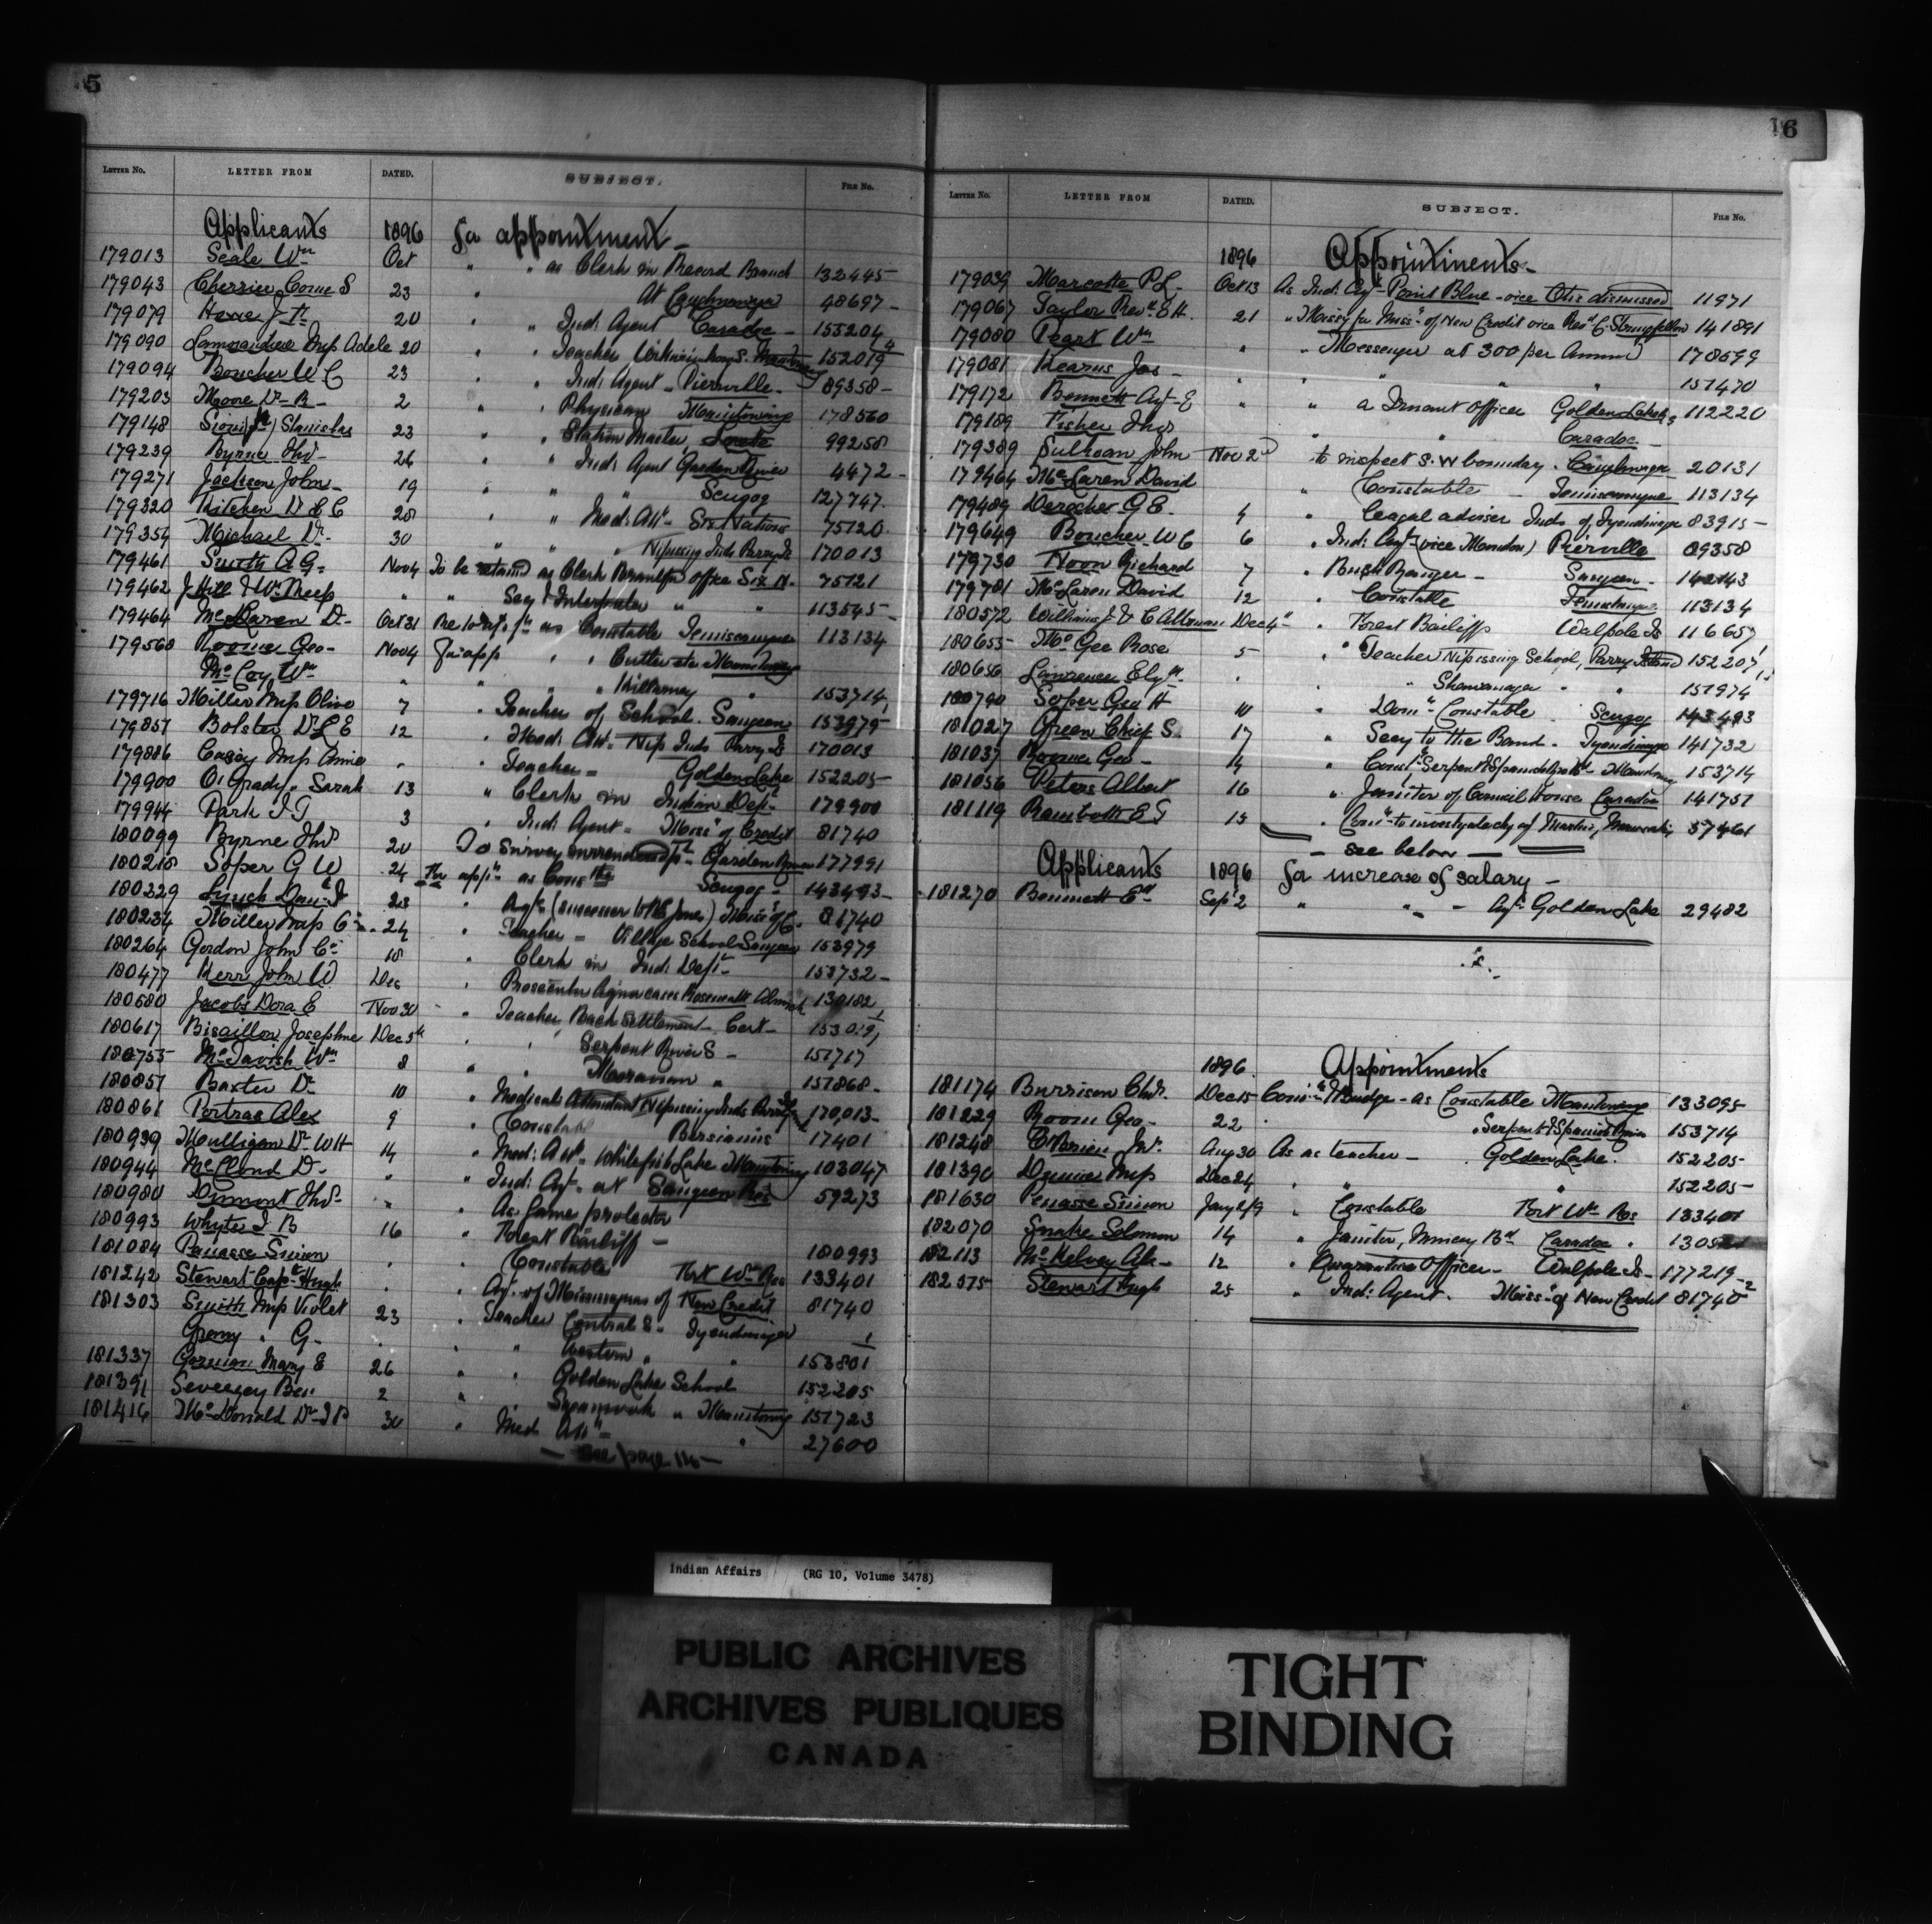 5
LETTER NO. LETTER FROM DATED. SUBJECT. FILE No.
Applicants 1896 for appointment -
179013 Seale Wm Oct " " as Clerk in Record Branch 132445-
179043 Cherrier Cosme S 23 " At Caughnawaga 48697-
179079 J H 20 " " Ind: Agent Caradoc - 155204
179090 Lamorandiere Mrs Adele 20 " " Teacher S. 152019
179094 Boucher W C 23 " " Ind: Agent - Pierville - 89358-
179203 Moore Dr B - 2 " " Physician Manitowng 178560
179148 Sioui Stanislas 23 " " Station Master, Lorette 99258
179239 Byrne Thos 26 " " Ind: Agent Garden River 4472-
179271 Jackson John - 19 " " " Scugog 127747.
179320 Kitchen Dr E C 28 " " Med: Att - Six Nations 75120
179354 Michael Dr - 30 " " " Nipissing Inds Parry Is 170013
179461 Smith A G - Nov 4 To be retained as Clerk Brantford office Six N - 75121
179462 J Hill & Wm Reep " " Secy & Interpreter " " 113545-
179464 McLaren D - Oct 31 as Constable Temiscamingue 113134
179568 Roome Geo - Nov 4 For app " " Cutler etc Manitowng
McCoy Wm " " " " Killarney " 153714
179716 Miller Mrs Olive 7 " Teacher of School. Saugeen 153979-
179857 Bolster Dr L E 12 " Med: Att - Nip Inds Parry Is 170013
179886 Casey Mrs Annie " " Teacher - Golden Lake 152205-
179900 O'Grady " Sarah 13 " Clerk in Indian Dept 179900
179944 Park I T 3 " Ind: Agent - Miss. of Credit 81740
180099 Byrne Thos 20 To Survey surrendered Garden River 177991
180218 Soper G W 24 For appt as Constble Scugog - 143493-
180329 Lynch Danl J 23 " Agt (successor to P E Jones) Miss of C. 81740
180234 Miller Mrs O - 24 " Teacher - Village School Saugeen 153979
180264 Gordon John C. 18 " Clerk in Ind: Dept - 153732-
180477 Kerr John W Dec " Prosecutor Liquor cases Roseneath Alnwick 130182
180680 Jacobs Dora E Nov 30 " Teacher Back Settlement - Cert - 153019
180617 Bisaillon Josephine Dec 5th " " Serpent River S - 151717
180755 McTavish Wm 8 " " Moravian " 151868-
180857 Baxter Dr 10 " Medical Attendant Nipissing Inds Parry Is 170,013-
180861 Portras Alex 9 " Constabl Bersimis 17401
180939 Mulligan Dr W H 14 " Med: Att - Whitefish Lake Manitowng 103047
180944 D - " " Ind: Agt - at Saugeen Res 59273
180980 Thos - " " As Game protector
180993 Whyte J B 16 " Forest Bailiff - 180993
181084 Penasse Simon " " Constable Fort Wm Res 133401
181242 Stewart Capt Hugh . " Agt. of Mississaguas of New Credit 81740
181303 Smith Mrs Violet 23 " Teacher Central S - Tyendinaga
" G - . " " Western " " 153801
181337 Gorman Mary E 26 " " Golden Lake School 152205
181391 Sevezey Ben 2 " " " Manitowng 151723
181416 McDonald Dr J P 30 " Med Att - " 27600
- see page 116 -
16
LETTER NO. LETTER FROM DATED. SUBJECT. FILE No.
1896 Appointments -
179039 Marcotte P L - Oct 13 As Ind: Agt - Point Blue - vice Otis dismissed 11971
179067 Taylor Revd E H. 21 " Missy for Miss. of New Credit vice Revd C. Stringfellow 141891
179080 Peart Wm " " Messenger at 300 per Annum 178599
179081 Kearns Jas - " " " " " 151470
179172 Bennett Agt - E " " a Truant Officer Golden Lake 112220
179189 Fisher Thos " " Caradoc -
179389 Sullivan John Nov 2nd to inspect S.W boundary. Caughnawaga 20131
179464 McLaren David " Constable - Temiscamingue 113134
179489 Deroche G E. 4 " Legal adviser Inds of Tyendinaga 83915-
179649 Boucher W C 6 " Ind: Agt (vice ) Pierville 89358
179730 Noon Richard 7 " Bush Ranger - Saugeen - 142143
179781 McLaren David 12 " Constable 113134
180572 Williams J & C Altman Dec 4th " Forest Bailiffs Walpole Is 116657
180655- McGee Rose 5 " Teacher Nipissing School, Parry Island 152207
180656 Lawrence Elizth . " Shawanaga " " 151974
180790 Soper Geo H 10 " Domn Constable Scugog 143493
181027 Green Chief S. 17 " Secy to the Band. Tyendinaga 141732
181037 Roome Geo - 14 " Const. Serpent & Spanish Manitowng 153714
181056 Peters Albert 16 " Janitor of Council House Caradoc 141751
181119 Rambotte E G 15 " Comr to investigate
- see below -
Applicants 1896 for increase of salary -
181270 Bennett Ed Sept 2 " " - Agt Golden Lake 29482
1896 Appointments
181174 Burrison Chas. Dec 15 - as Constable Manitowng 133095-
181229 Room Geo - 22 " Serpent & Spanish River 153714
181248 O'Brien Jno. Aug 30 As a teacher - Golden Lake. 152205-
181390 Mrs Dec 24 " " " 152205-
181630 Penasse Simon " Constable Fort Wm Res 133401
182070 Snake Solomon 14 " Janitor, Muncey Bd Caradoc.
182113 McKelvey Alx - 12 " Quarantine Officer - Walpole Is - 177219-
182575 Stewart Hugh 25 " Ind: Agent. Miss. of New Credit 81740
Indian Affairs (RG 10, Volume 3478)
PUBLIC ARCHIVES
ARCHIVES PUBLIQUES
CANADA
TIGHT
BINDING